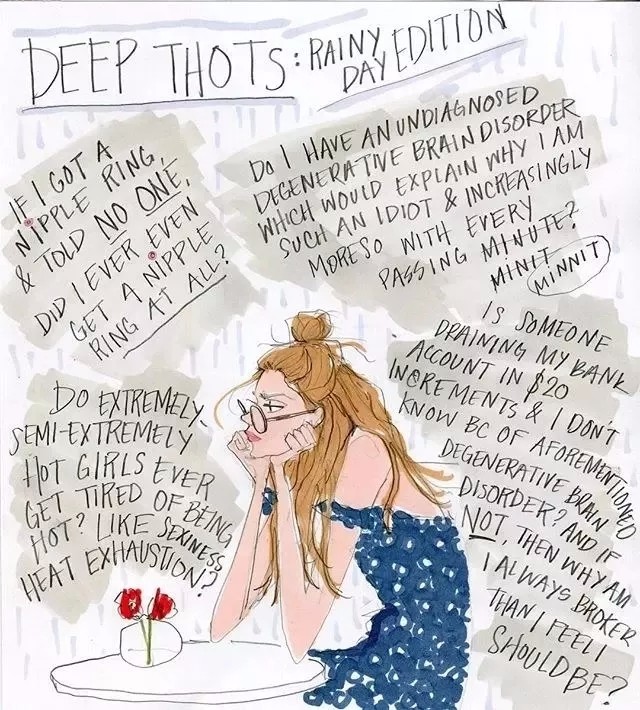 DEEP THOTS: RAINY DAY EDITION
IF I GOT A
NIPPLE RING,
& TOLD NO ONE,
DID I EVER EVEN
GET A NIPPLE
RING AT ALL?
DO I HAVE AN UNDIAGNOSED
DEGENERATIVE BRAIN DISORDER
WHICH WOULD EXPLAIN WHY I AM
SUCH AN IDIOT & INCREASINGLY
MORE SO WITH EVERY
PASSING MINUTE?
MINIT
MINNIT
DO EXTREMELY-
SEMI-EXTREMELY
HOT GIRLS EVER
GET TIRED OF BEING
HOT? LIKE SEXINESS
HEAT EXHAUSTION?
IS SOMEONE
DRAINING MY BANK
ACCOUNT IN $20
INCREMENTS & I DON'T
KNOW BC OF AFOREMENTIONED
DEGENERATIVE BRAIN
DISORDER? AND IF
NOT, THEN WHY AM
I ALWAYS BROKER
THAN I FEEL I
SHOULD BE?